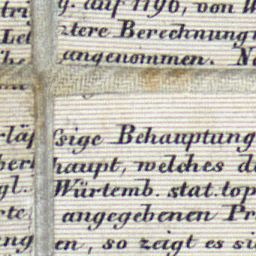 g. auf 1196, von W
Le ztere Berechnung
angenommen. N
läs sige Behauptung
ber haupt, welches d
gl. Würtemb. stat. top
rte, angegebenen Pr
ng en, so zeigt es si